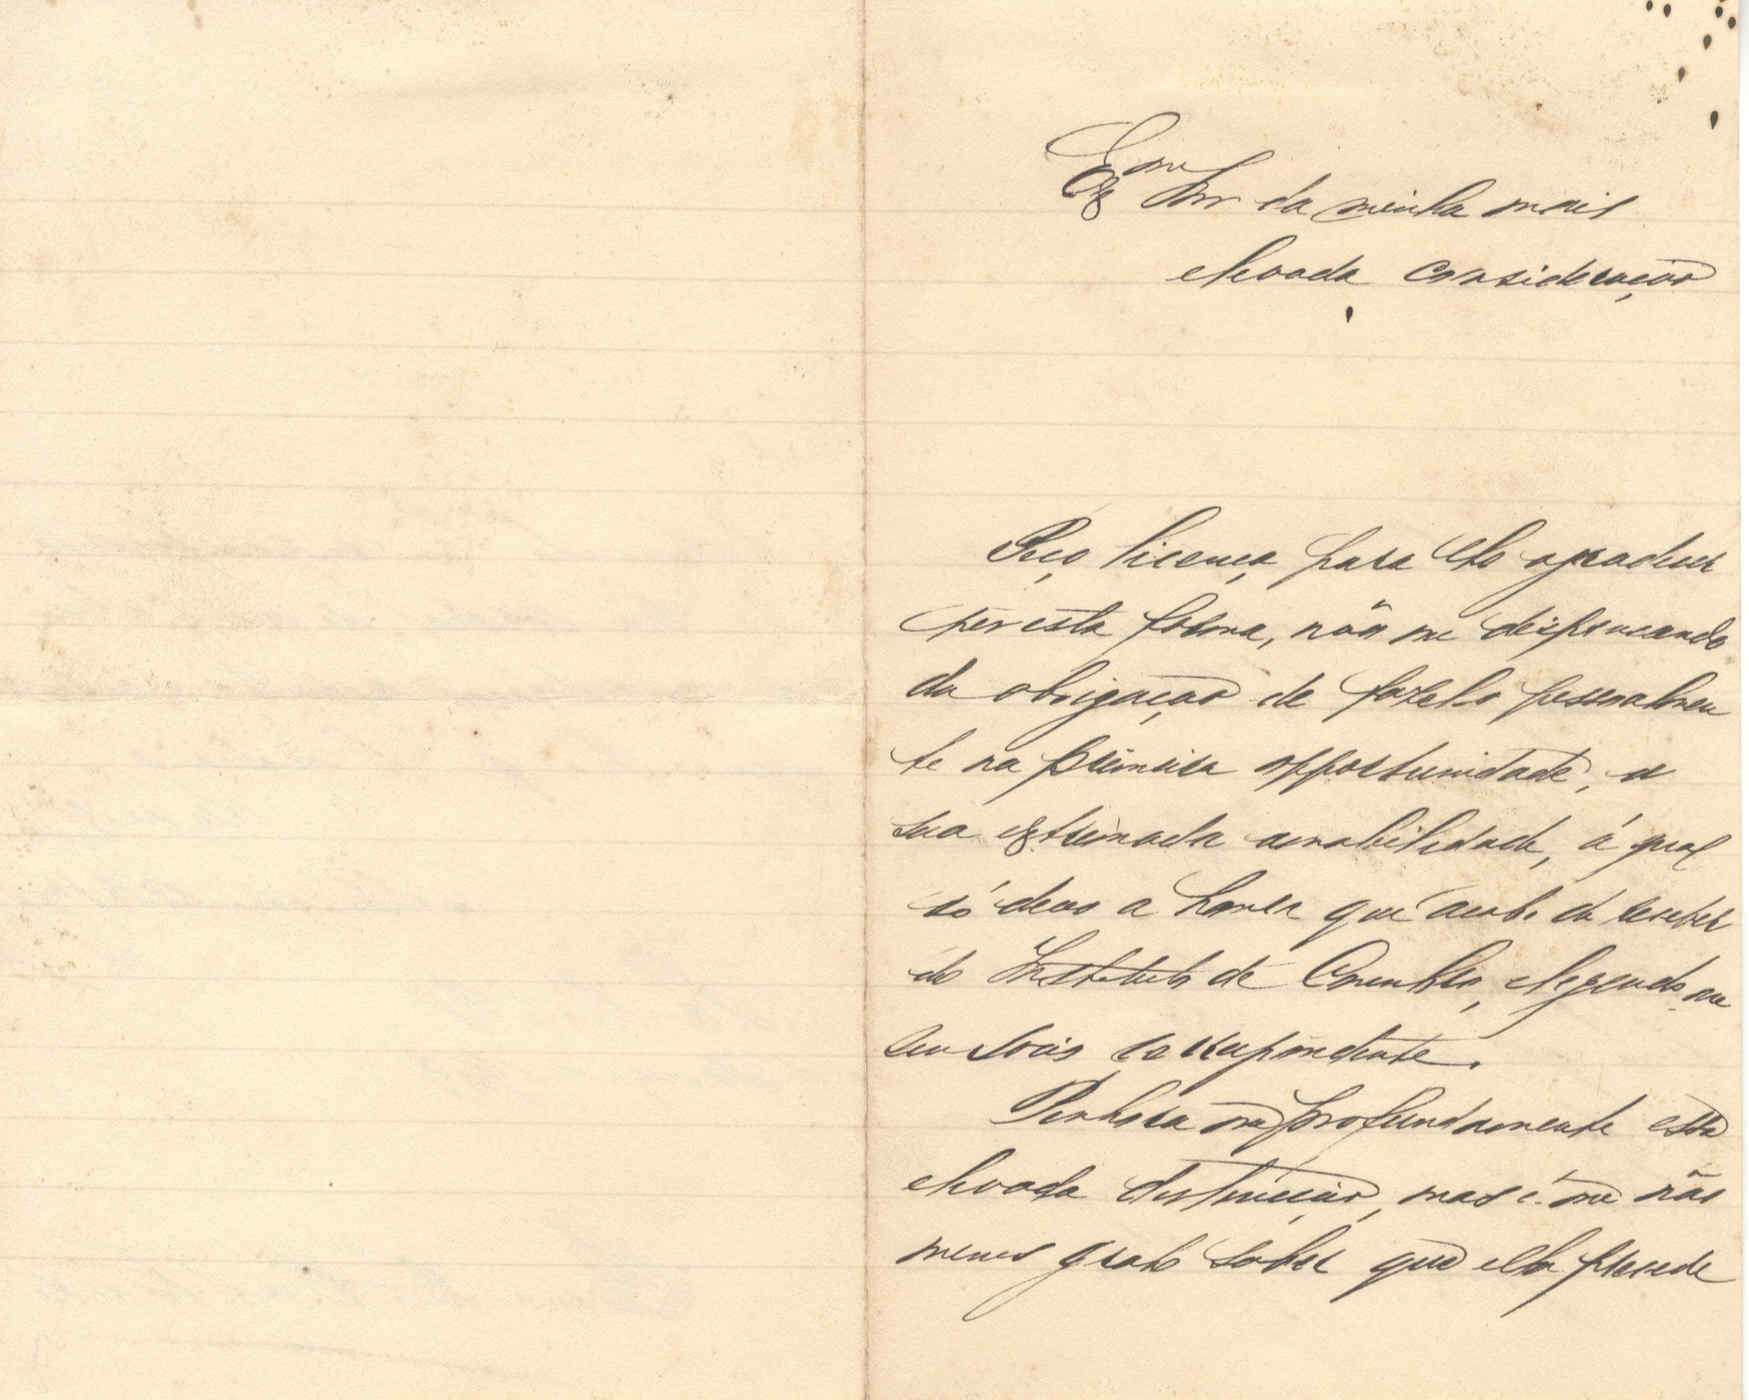 Exmo Snr da minha mais
elevada consideração
Peço licença para lhe agradecer
por esta forma, não me dispensando
da obrigação de fazelo pessoalmen
te na primeira opportunidade, a
sua extremada amabilidade, á qual
só devo a honra que acabo de receber
do Instituto de Coimbra, elegendo-me
seu socio correspondente.
Penhora-me profundamente essa
elevada distincção, mas é-me não
menos grato saber que ella procede